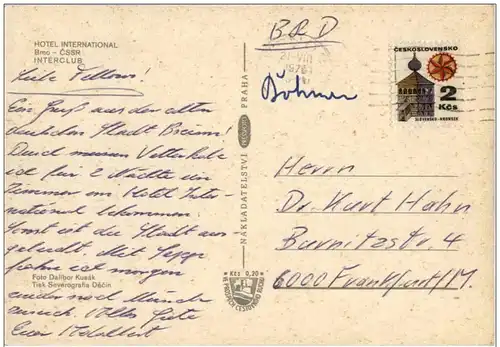 HOTEL INTERNATIONAL
Brno - ČSSR
INTERCLUB
Liebe
Ein Gruß aus der alten
deutschen Stadt Brünn!
Durch meinen
ich für 2 Nächte ein
Zimmer im Hotel Inter-
national bekommen.
Sonst ist die Stadt aus-
gebucht. Mit Sepp
fahre ich morgen
wieder nach
zurück. Alles Gute
Euer
Foto Dalibor Kusák
Tisk Severografia Děčín
NAKLADATELSTVÍ PRESSFOTO PRAHA
Kčs 0,20
VE PROSPĚCH CESTOVNÍHO RUCHU
BRD
21.VIII
1976
Böhmen
ČESKOSLOVENSKO
2
Kčs
SLOVENSKO-HRONSEK
Herrn
Dr. Kurt Hahn
Burnitzstr. 4
6000 Frankfurt/M.